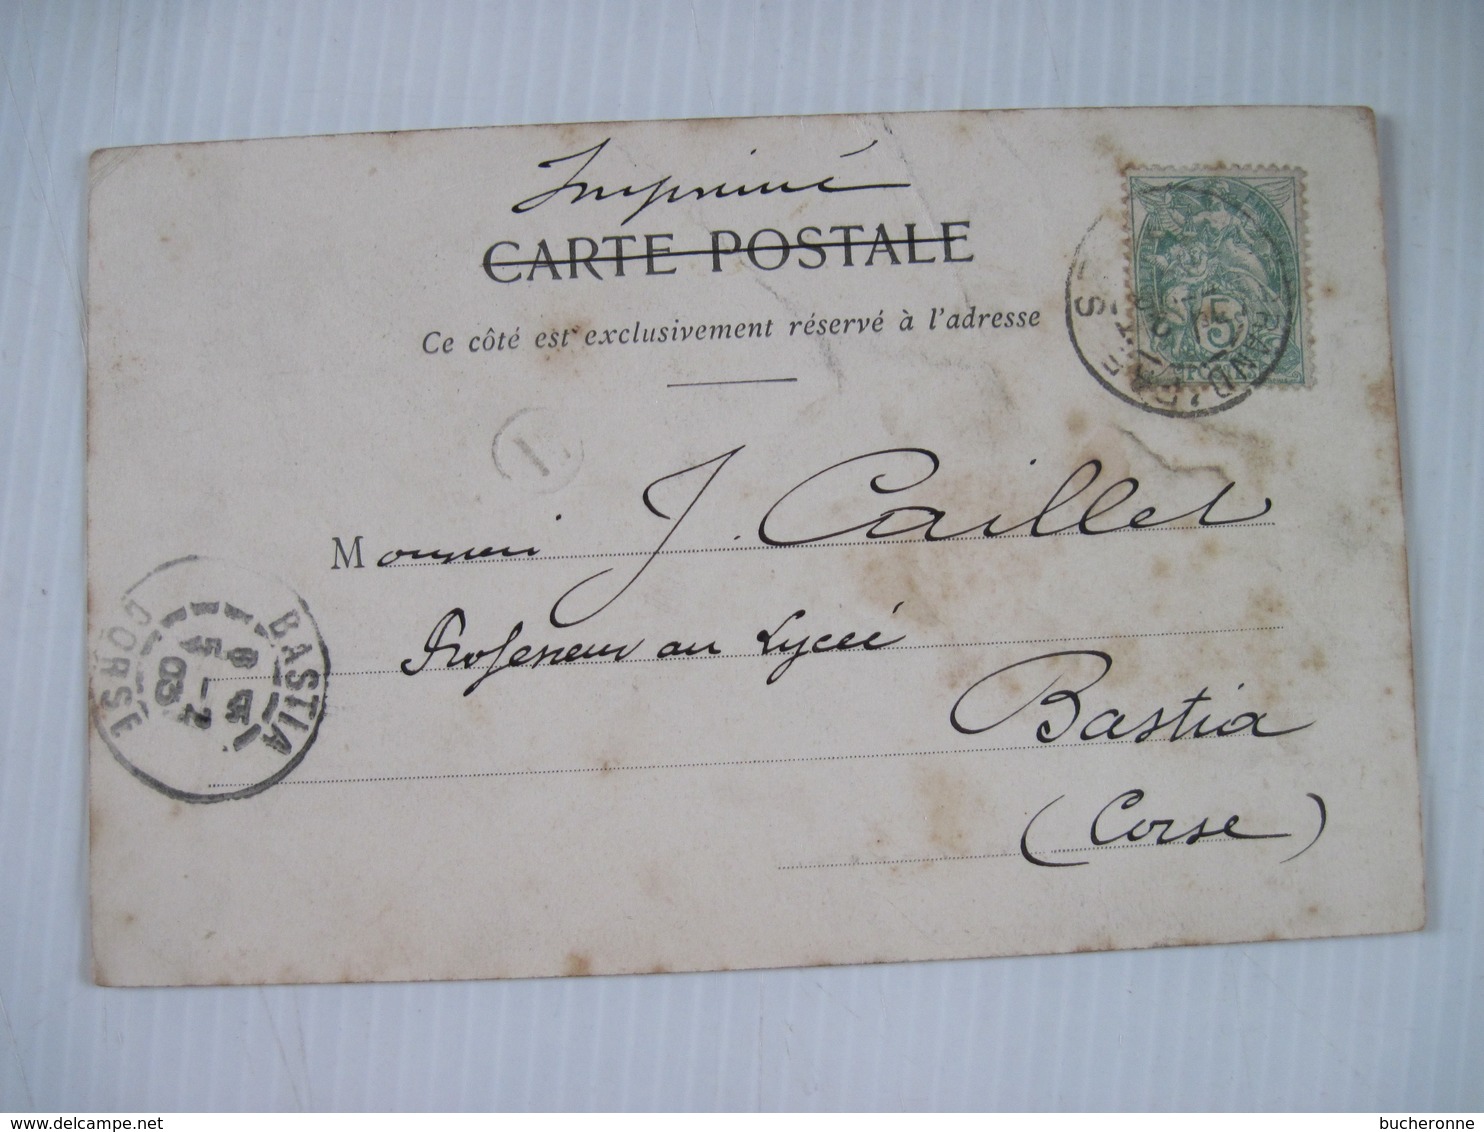 Imprimé
CARTE POSTALE
Ce côté est exclusivement réservé à l'adresse
5
1E
Monsieur J. Caillet
Professeur au Lycée
Bastia
(Corse)
BASTIA
CORSE
www.delcampe.net
bucheronne